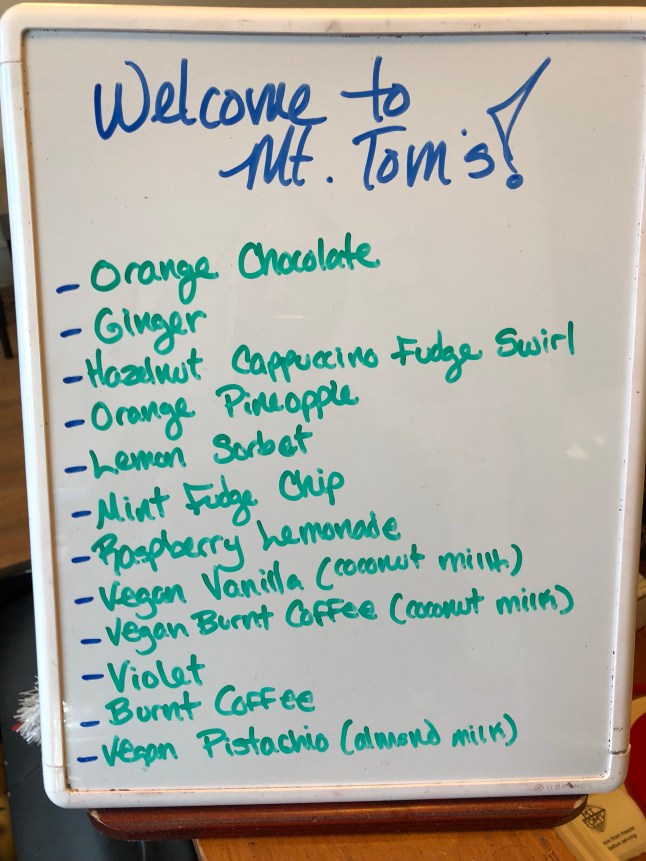 Welcome to
Mt. Tom's!
- Orange Chocolate
- Ginger
- Hazelnut Cappuccino Fudge Swirl
- Orange Pineapple
- Lemon Sorbet
- Mint Fudge Chip
- Raspberry Lemonade
- Vegan Vanilla (coconut milk)
- Vegan Burnt Coffee (coconut milk)
- Violet
- Burnt Coffee
- Vegan Pistachio (almond milk)
U BRANDS
MT.
TOM'S